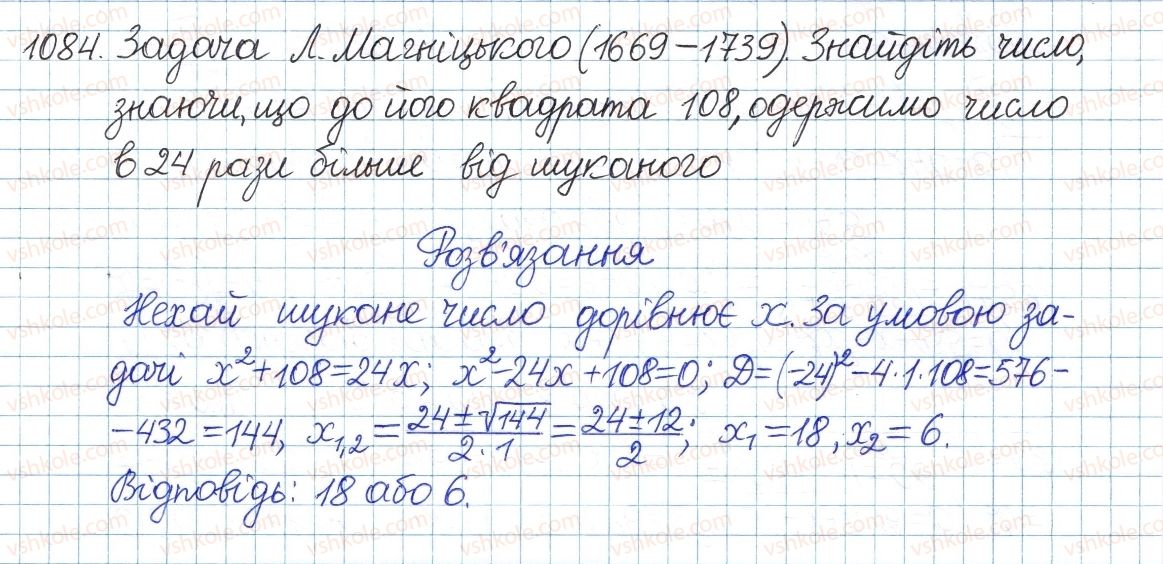 1084. Задача Л. Магніцького (1669-1739). Знайдіть число,
знаючи, що до його квадрата 108, одержимо число
в 24 рази більше від шуканого
Розв'язання
Нехай шукане число дорівнює x. За умовою за-
дачі x²+108=24x; x²-24x+108=0; D=(-24)²-4·1·108=576-
-432=144, x₁,₂=(24±√144)/(2·1)=(24±12)/2; x₁=18, x₂=6.
Відповідь: 18 або 6.